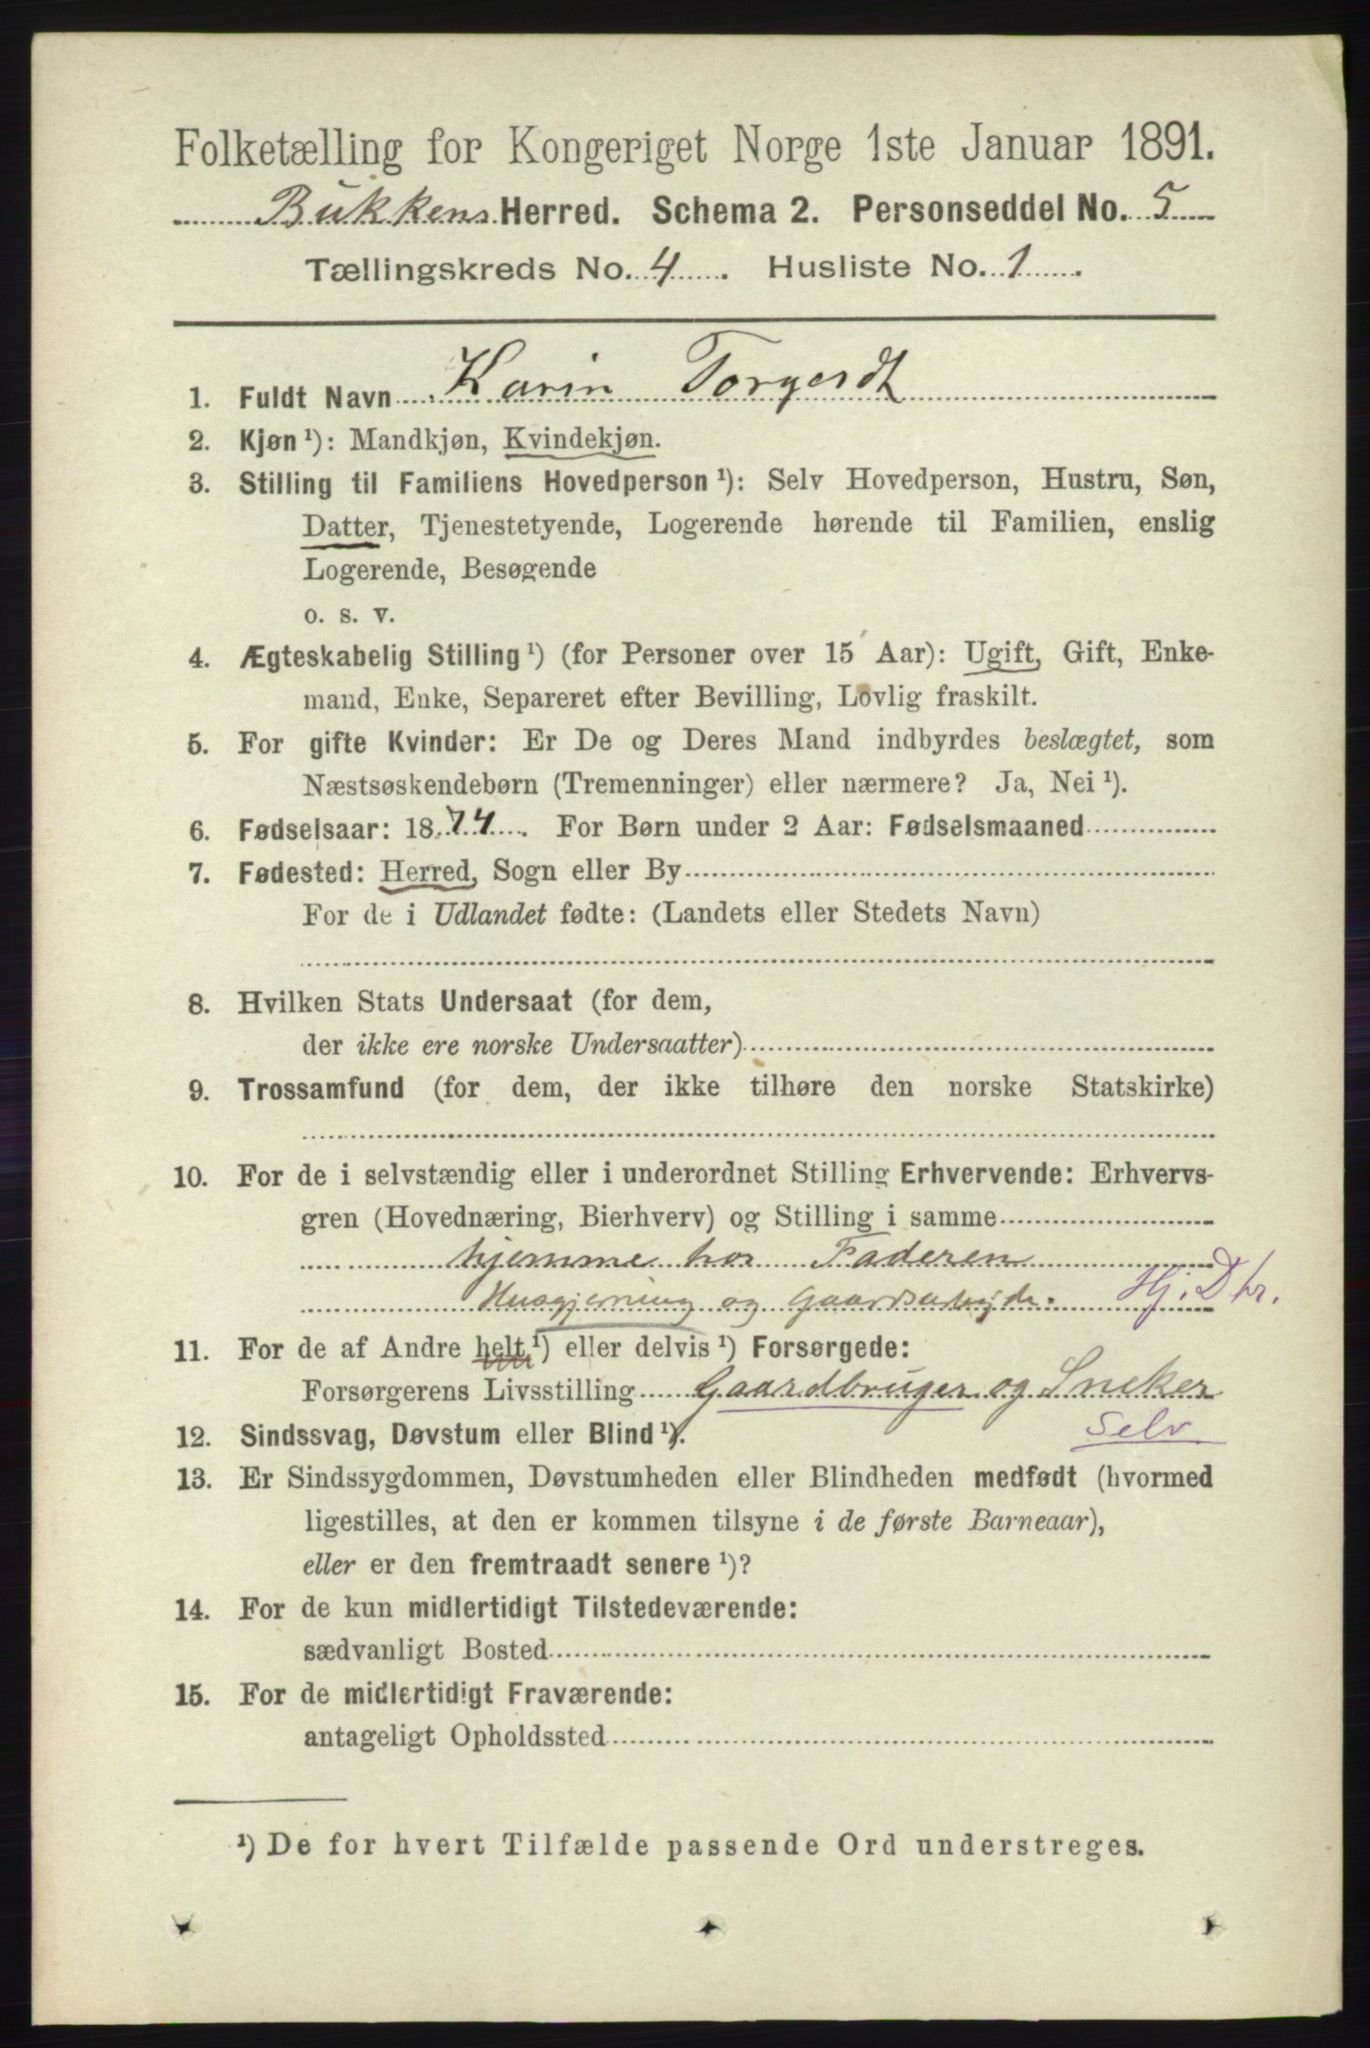 Folketælling for Kongeriget Norge 1ste Januar 1891.
Bukkens Herred. Schema 2. Personseddel No. 5
Tællingskreds No. 4. Husliste No. 1.
1. Fuldt Navn Karin Torgersdt
2. Kjøn ¹): Mandkjøn, Kvindekjøn.
3. Stilling til Familiens Hovedperson ¹): Selv Hovedperson, Hustru, Søn,
Datter, Tjenestetyende, Logerende hørende til Familien, enslig
Logerende, Besøgende
o. s. v.
4. Ægteskabelig Stilling ¹) (for Personer over 15 Aar): Ugift, Gift, Enke-
mand, Enke, Separeret efter Bevilling, Lovlig fraskilt.
5. For gifte Kvinder: Er De og Deres Mand indbyrdes beslægtet, som
Næstsøskendebørn (Tremenninger) eller nærmere? Ja, Nei ¹).
6. Fødselsaar: 1874. For Børn under 2 Aar: Fødselsmaaned
7. Fødested: Herred, Sogn eller By
For de i Udlandet fødte: (Landets eller Stedets Navn)
8. Hvilken Stats Undersaat (for dem,
der ikke ere norske Undersaatter)
9. Trossamfund (for dem, der ikke tilhøre den norske Statskirke)
10. For de i selvstændig eller i underordnet Stilling Erhvervende: Erhvervs-
gren (Hovednæring, Bierhverv) og Stilling i samme
hjemme hos Faderen
Husgjerning og Gaardsarbejde. Hj. D hr.
11. For de af Andre helt ¹) eller delvis ¹) Forsørgede:
Forsørgerens Livsstilling Gaardbruger og Sneker
Selv
12. Sindssvag, Døvstum eller Blind ¹).
13. Er Sindssygdommen, Døvstumheden eller Blindheden medfødt (hvormed
ligestilles, at den er kommen tilsyne i de første Barneaar),
eller er den fremtraadt senere ¹)?
14. For de kun midlertidigt Tilstedeværende:
sædvanligt Bosted
15. For de midlertidigt Fraværende:
antageligt Opholdssted
¹) De for hvert Tilfælde passende Ord understreges.